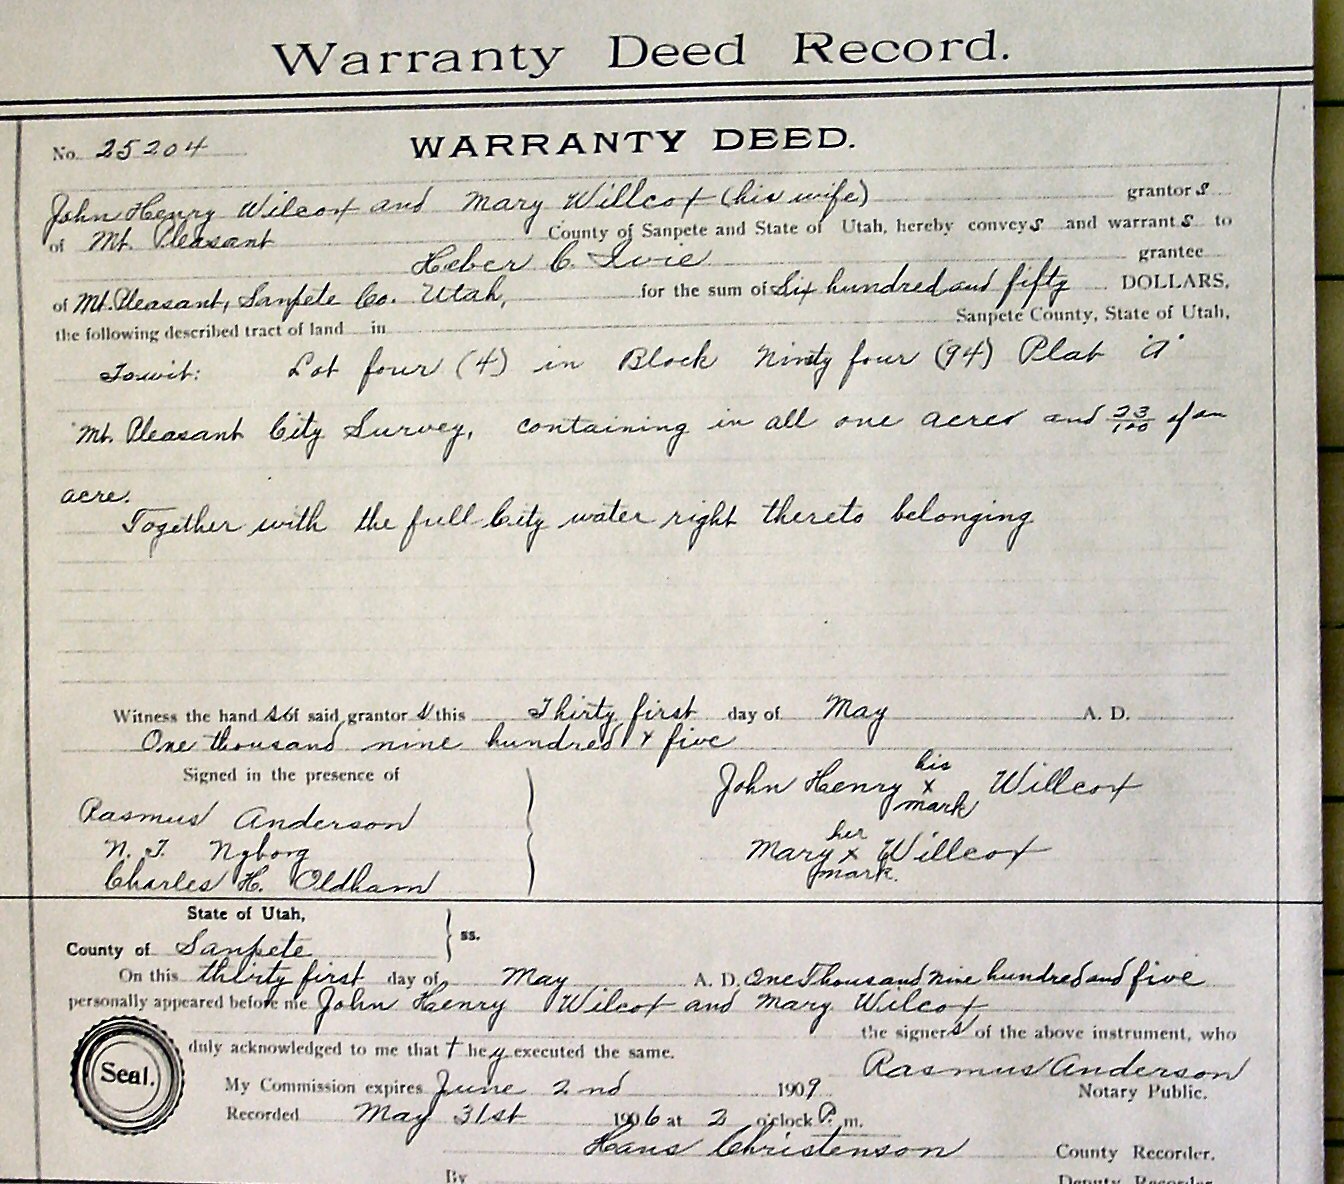 Warranty Deed Record.
WARRANTY DEED.
No. 25204
John Henry Wilcox and Mary Willcox (his wife) grantors
of Mt. Pleasant County of Sanpete and State of Utah, hereby conveys and warrants to
Heber C. Ivie grantee
of Mt. Pleasant, Sanpete Co. Utah, for the sum of Six hundred and fifty DOLLARS,
the following described tract of land in Sanpete County, State of Utah,
Towit: Lot four (4) in Block Ninety four (94) Plat "A"
Mt. Pleasant City Survey, containing in all one acres and 23/100 of an
acre.
Together with the full City water right thereto belonging
Witness the hand s of said grantor s this Thirty first day of May A. D.
One thousand nine hundred & five
Signed in the presence of
Rasmus Anderson
N. T. Nyborg
Charles H. Oldham
John Henry his x mark Willcox
Mary her x mark. Willcox
State of Utah,
County of Sanpete ss.
On this thirty first day of May A. D. One Thousand Nine hundred and five
personally appeared before me John Henry Wilcox and Mary Wilcox
the signers of the above instrument, who
duly acknowledged to me that they executed the same.
Rasmus Anderson
Seal.
My Commission expires June 2nd 1909 Notary Public.
Recorded May 31st 1906 at 2 o'clock P. m.
Hans Christenson County Recorder.
By Deputy Recorder